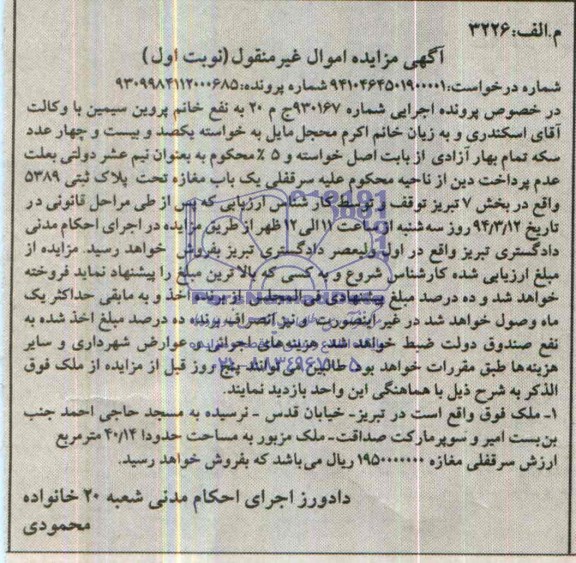 م.الف:۳۲۲۶
آگهی مزایده اموال غیرمنقول (نوبت اول)
شماره درخواست:۹۴۱۰۴۶۴۵۰۱۹۰۰۰۰۱ شماره پرونده:۹۳۰۹۹۸۴۱۱۲۰۰۰۶۸۵
در خصوص پرونده اجرایی شماره ۹۳۰۱۶۷ج م ۲۰ به نفع خانم پروین سیمین با وکالت
آقای اسکندری و به زیان خانم اکرم محجل مایل به خواسته یکصد و بیست و چهار عدد
سکه تمام بهار آزادی از بابت اصل خواسته و ۵ ٪ محکوم به بعنوان نیم عشر دولتی بعلت
عدم پرداخت دین از ناحیه محکوم علیه سرقفلی یک باب مغازه تحت پلاک ثبتی ۵۳۸۹
واقع در بخش ۷ تبریز توقف و توسط کار شناس ارزیابی که پس از طی مراحل قانونی در
تاریخ ۹۴/۳/۱۲ روز سه شنبه از ساعت ۱۱ الی ۱۲ ظهر از طریق مزایده در اجرای احکام مدنی
دادگستری تبریز واقع در اول ولیعصر دادگستری تبریز بفروش خواهد رسید. مزایده از
مبلغ ارزیابی شده کارشناس شروع و به کسی که بالا ترین مبلغ را پیشنهاد نماید فروخته
خواهد شد و ده درصد مبلغ پیشنهادی فی المجلس از برنده اخذ و به مابقی حداکثر یک
ماه وصول خواهد شد در غیر اینصورت و نیز انصراف برنده ده درصد مبلغ اخذ شده به
نفع صندوق دولت ضبط خواهد شد. هزینه های اجرائی و عوارض شهرداری و سایر
هزینه‌ها طبق مقررات خواهد بود طالبین می توانند پنج روز قبل از مزایده از ملک فوق
الذکر به شرح ذیل با هماهنگی این واحد بازدید نمایند.
۱- ملک فوق واقع است در تبریز- خیابان قدس - نرسیده به مسجد حاجی احمد جنب
بن بست امیر و سوپرمارکت صداقت- ملک مزبور به مساحت حدودا ۴۰/۱۴ مترمربع
ارزش سرقفلی مغازه ۱۹۵۰۰۰۰۰۰۰ ریال می باشد که بفروش خواهد رسید.
دادورز اجرای احکام مدنی شعبه ۲۰ خانواده
محمودی